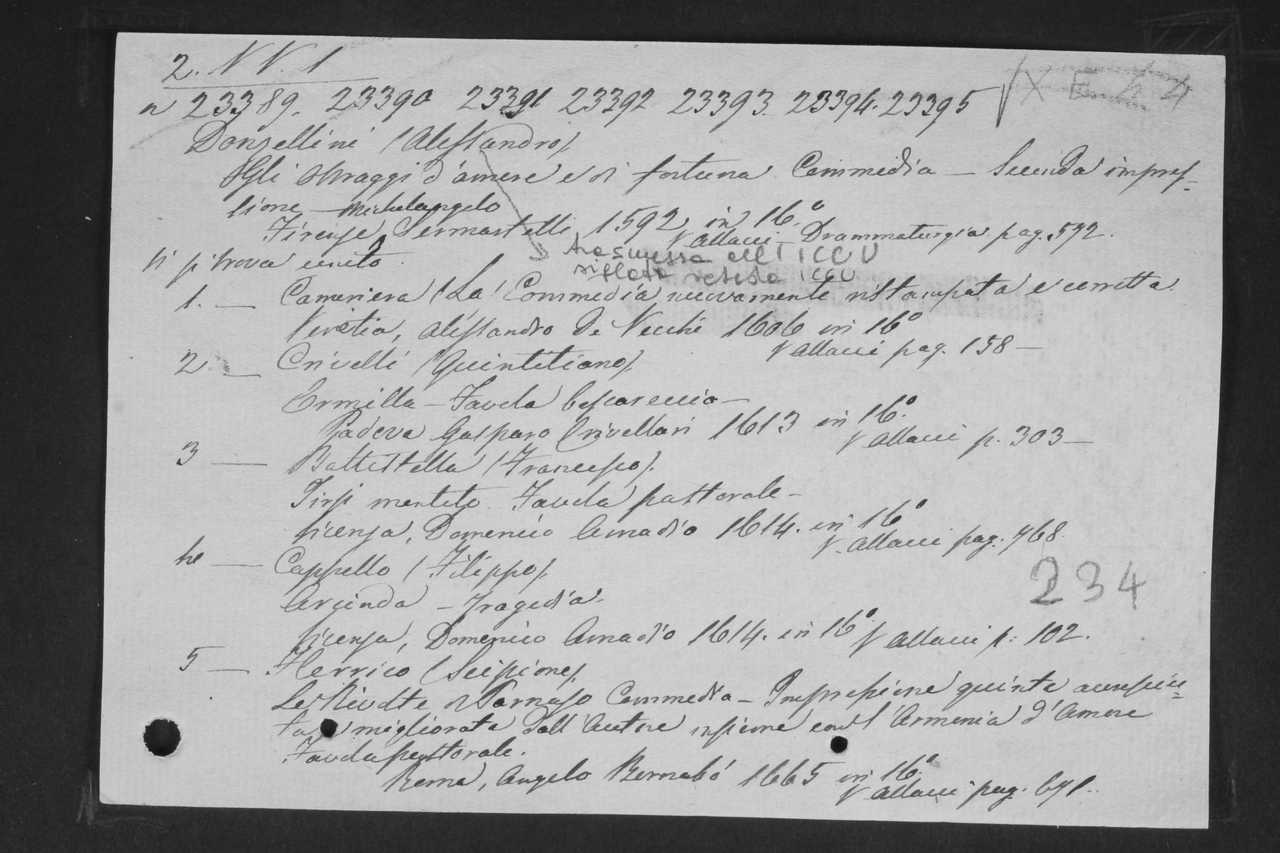 2. N V. 1
n 23389. 23390 23391 23392 23393. 23394. 23395 X E 44
Donzellini (Alessandro)
Gli oltraggi d'amore e di fortuna Commedia — Seconda impres-
sione — Michelangelo
Firenze, Sermartelli 1592, in 16.°
V Allacci — Drammaturgia pag. 592.
Vi si trova unito
trasmessa all'ICCU
ICCU
1. — Cameriera (La) Commedia nuovamente ristampata e corretta
Venetia, Alessandro De Vecchi 1606 in 16°
V Allacci pag. 158 —
2. — Crivelli (Quintiliano)
Ermilla — Favola boscareccia —
Padova Gasparo Crivellari 1613 in 16.°
V Allacci p. 303 —
3 — Battistella (Francesco)
Tirsi mentito Favola pastorale —
Vicenza, Domenico Amadio 1614. in 16°
V. Allacci pag. 768.
4 — Cappello (Filippo)
234
Arcinda — Tragedia.
Vicenza, Domenico Amadio 1614. in 16° V Allacci p. 102.
5 — Herrico (Scipione)
Le Rivolte di Parnaso Commedia — Impressione quinta accresciu=
ta e migliorata dall'Autore insieme coll'Armonia d'Amore
Favola pastorale.
Roma, Angelo Bernabò 1665 in 16.°
V Allacci pag. 671.